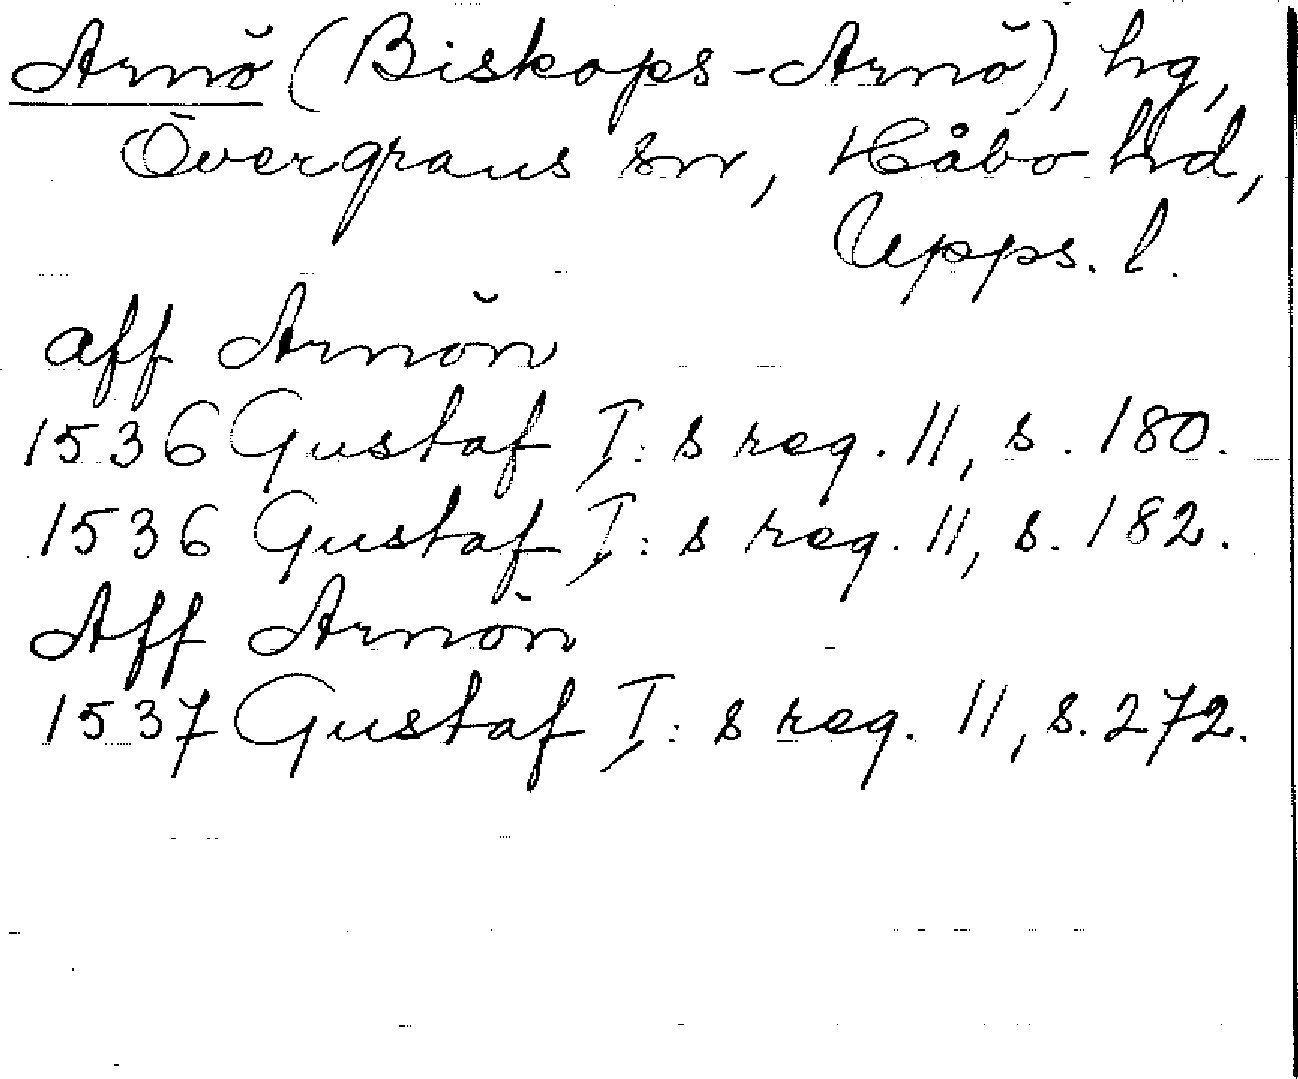 Arnö (Biskops-Arnö), hg,
Övergrans sn, Håbo hd,
Upps. l.
aff Arnön
1536 Gustaf I: s reg. 11, s. 180.
1536 Gustaf I: s reg. 11, s. 182.
Aff Arnön
1537 Gustaf I: s reg. 11, s. 272.